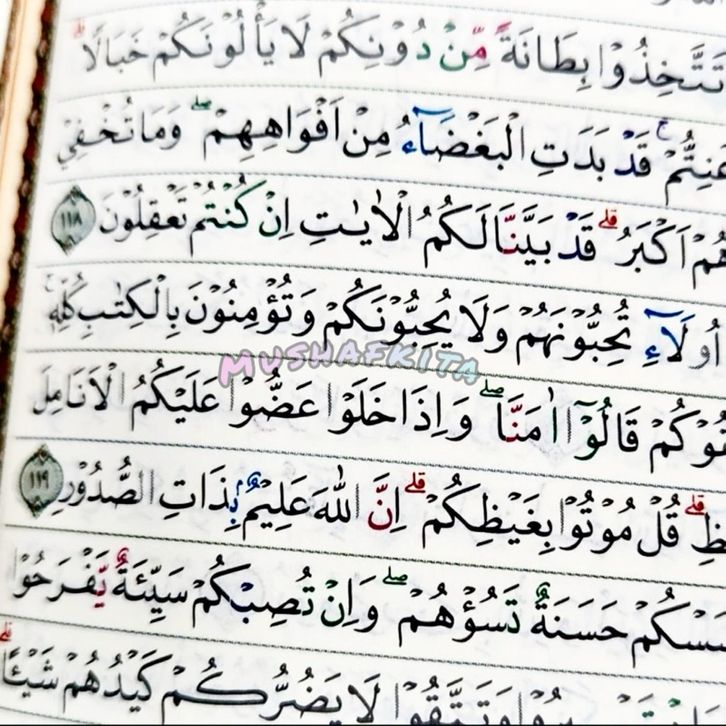 تَتَّخِذُوْا بِطَانَةً مِّنْ دُوْنِكُمْ لَا يَأْلُوْنَكُمْ خَبَالًاۗ
عَنِتُّمْۚ قَدْ بَدَتِ الْبَغْضَاۤءُ مِنْ اَفْوَاهِهِمْۖ وَمَا تُخْفِيْ
هُمْ اَكْبَرُۗ قَدْ بَيَّنَّا لَكُمُ الْاٰيٰتِ اِنْ كُنْتُمْ تَعْقِلُوْنَ ١١٨
اُولَاۤءِ تُحِبُّوْنَهُمْ وَلَا يُحِبُّوْنَكُمْ وَتُؤْمِنُوْنَ بِالْكِتٰبِ كُلِّهٖۚ
MUSHAFKITA
قُوْكُمْ قَالُوْٓا اٰمَنَّاۖ وَاِذَا خَلَوْا عَضُّوْا عَلَيْكُمُ الْاَنَامِلَ
ظِۗ قُلْ مُوْتُوْا بِغَيْظِكُمْۗ اِنَّ اللّٰهَ عَلِيْمٌۢ بِذَاتِ الصُّدُوْرِ ١١٩
سَسْكُمْ حَسَنَةٌ تَسُؤْهُمْۖ وَاِنْ تُصِبْكُمْ سَيِّئَةٌ يَّفْرَحُوْا
وَتَتَّقُوْا لَا يَضُرُّكُمْ كَيْدُهُمْ شَيْـًٔاۗ